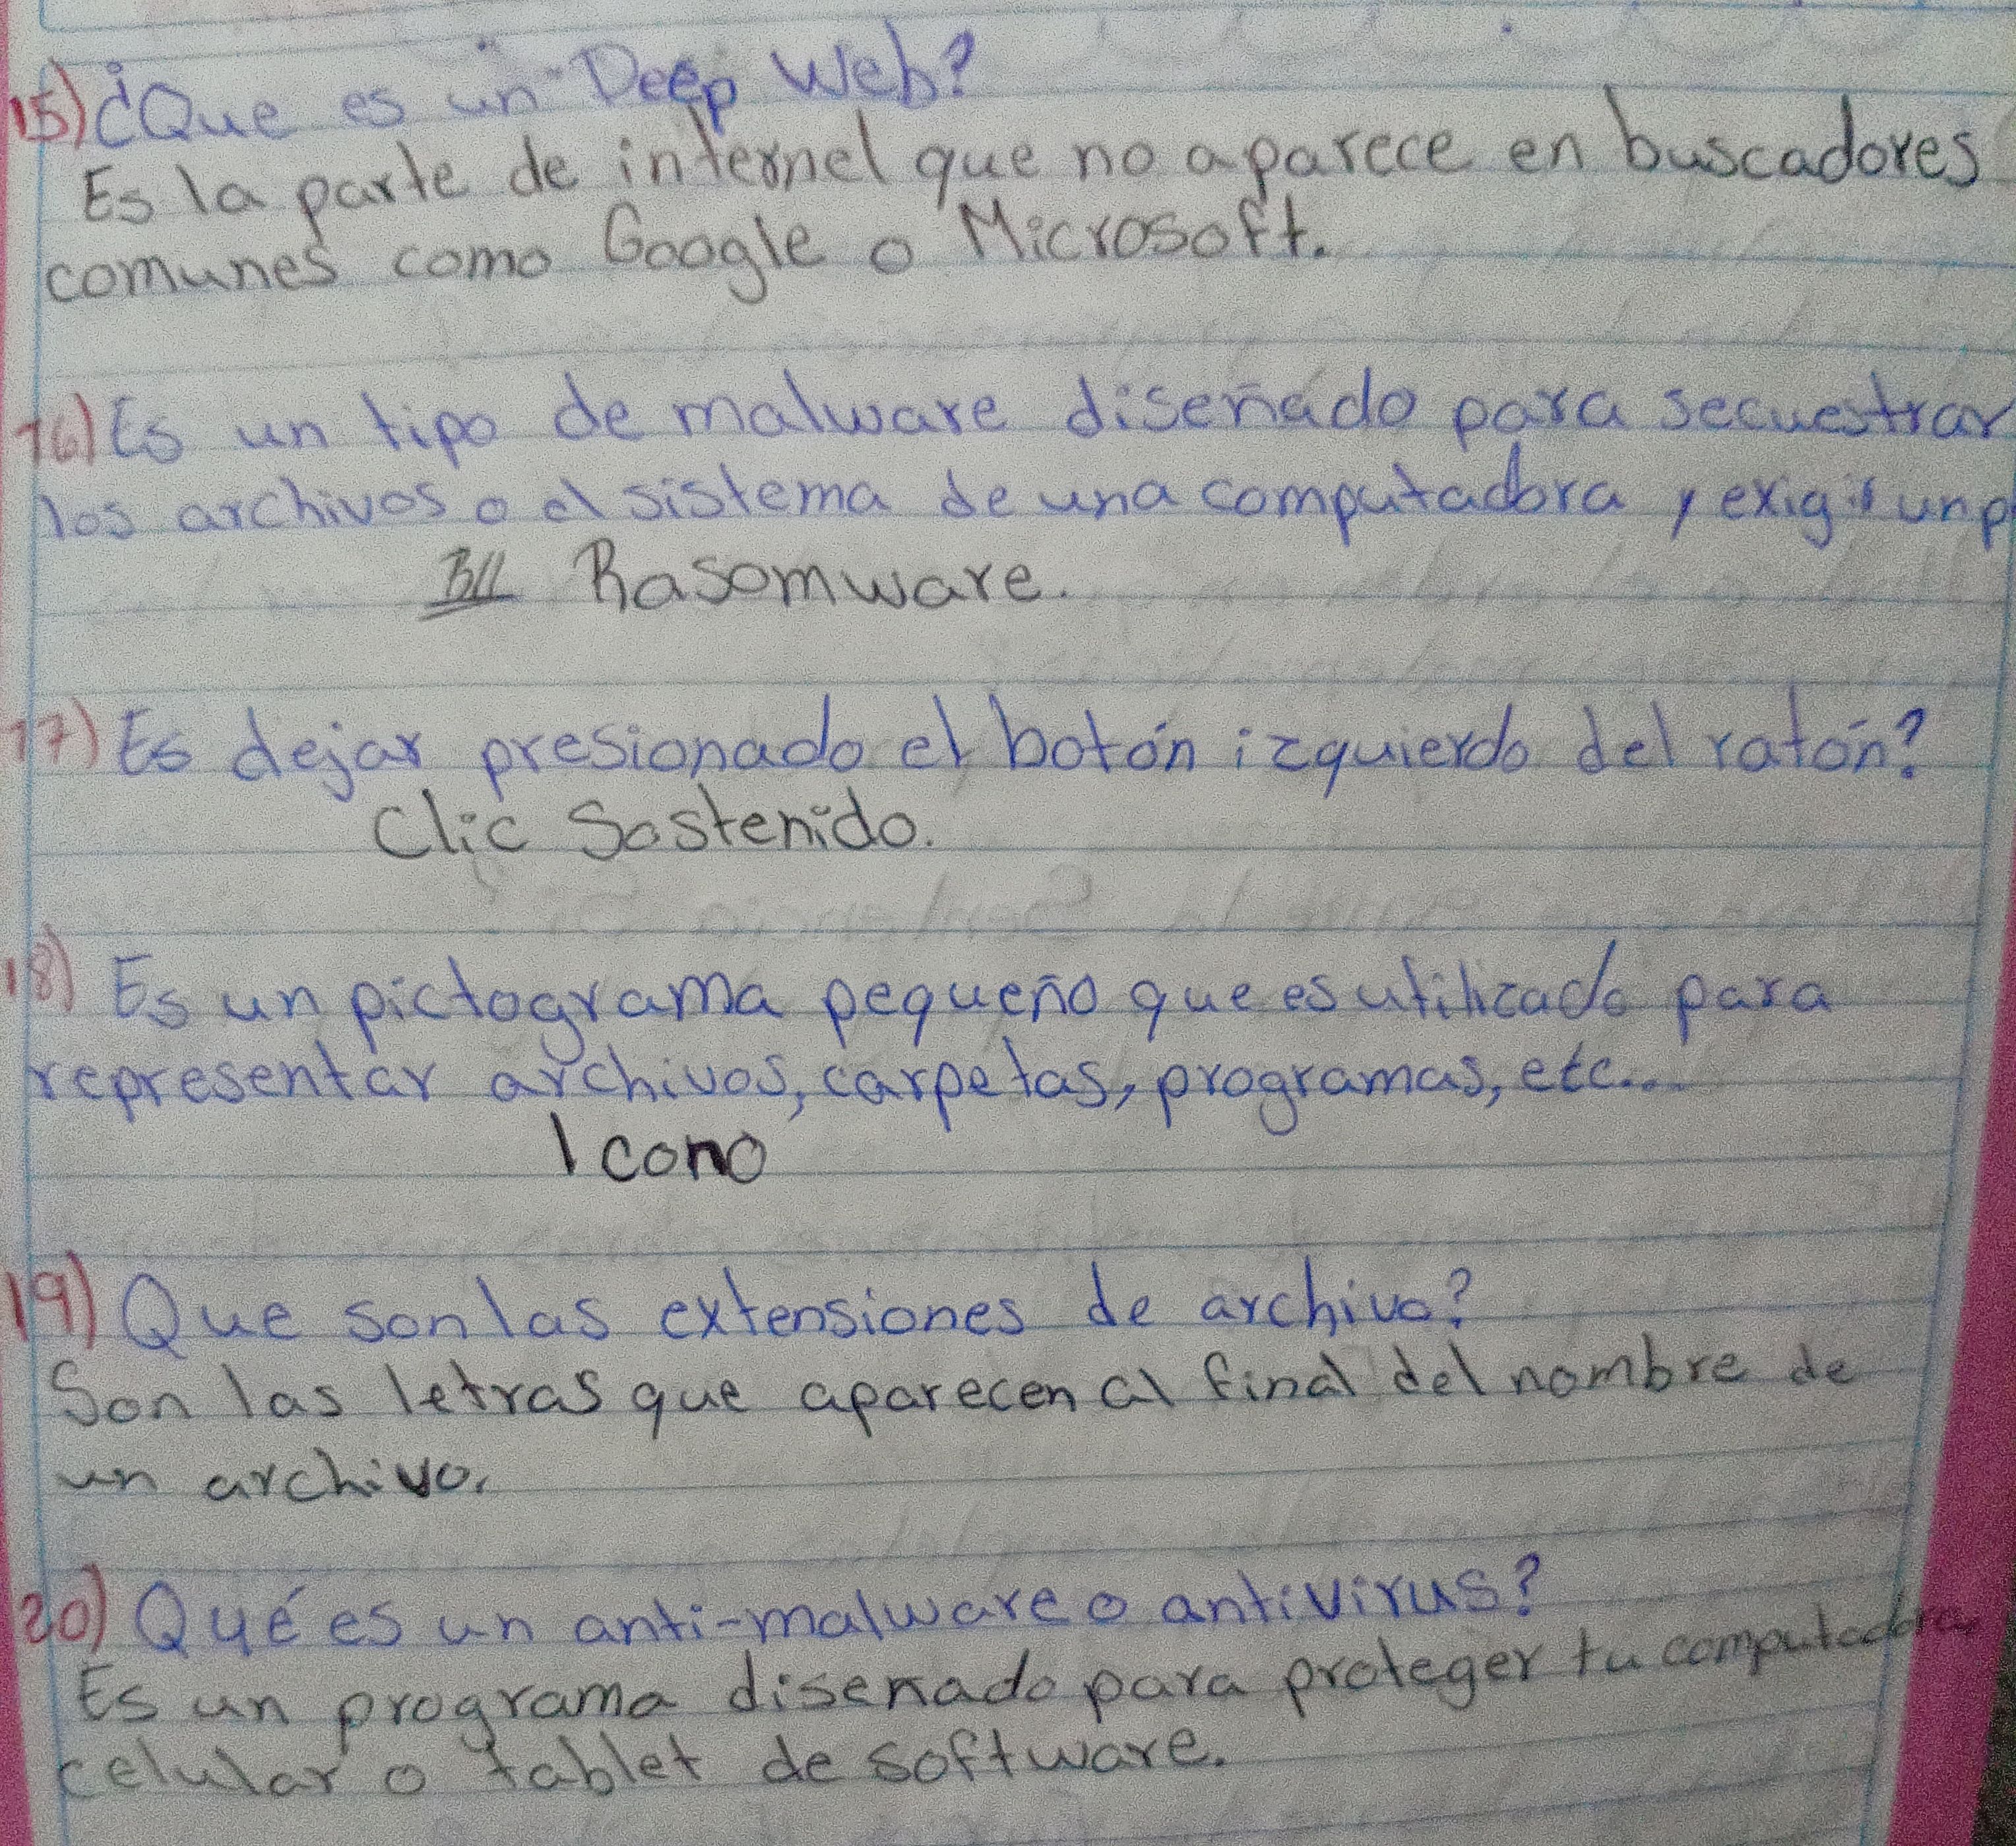 15) ¿Que es un Deep Web?
Es la parte de internel que no aparece en buscadores
comunes como Google o Microsoft.
16) Es un tipo de malware diseñado para secuestrar
los archivos o el sistema de una computadora y exigir un p
Rasomware.
17) Es dejar presionado el botón izquierdo del ratón?
Clic Sostenido.
18) Es un pictograma pequeño que es utilizado para
representar archivos, carpetas, programas, etc...
Icono
19) Que son las extensiones de archivo?
Son las letras que aparecen al final del nombre de
un archivo.
20) Qué es un anti-malware o antivirus?
Es un programa disenado para proteger tu computadora
celular o tablet de software.